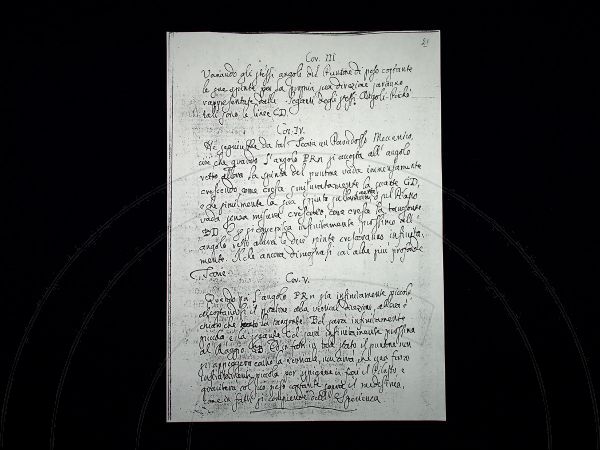 Cor. III
Variando gli stessi angoli del Puntone di peso costante
le sue spinte per la propria sua direzione saranno
rappresentate dalle Seganti degli stessi Angoli. Perchè
tali sono le linee CD.
Cor. IV.
Ne seguirebbe da tal Teoria un Paradosso Meccanico,
cioè che quando l'angolo PRn si accosta all'angolo
retto allora la spinta del puntone vada immensamente
crescendo come cresce infinitamente la secante CD,
e che similmente la sua spinta sul Piano
vada senza misura crescendo come cresce la tangente
BD. E se si avvicina infinitamente prossimo all'
angolo retto allora le due spinte crescebbero infinita
mente. Il che ancora dimostrasi dalle più profonde
Teorie.
Cor. V.
Quando poi l'angolo PRn sia infinitamente piccolo
accostandosi il puntone alla vertical direzione, allora è
chiaro che la tangente BD sarà infinitamente
piccola e la segante CD sarà infinitamente prossima
al Raggio CB. Ed infatti in tale stato il puntone non
si appoggerà contro la verticale, con una forza
infinitamente piccola per spingere in fuori il Piano e
graviterà col suo peso costante sopra il medesimo,
come in fatti si comprende dall'Esperienza